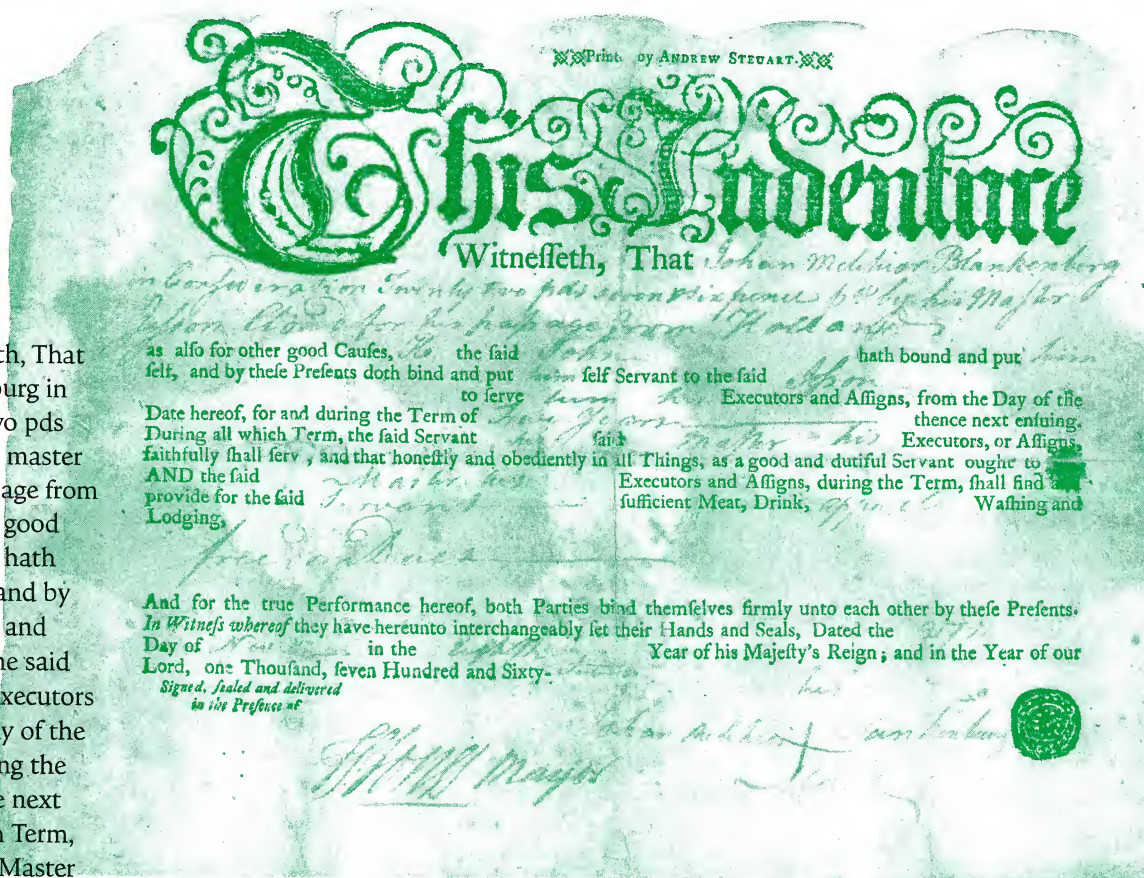 Print. by ANDREW STEUART.
This Indenture
Witneſſeth, That Johan Melchior Blankenberg
in Conſideration Twenty two pds seven & sixpence pd by his Maſter
for his paſsage from Holland
as alſo for other good Cauſes, he the ſaid John hath bound and put him
ſelf, and by theſe Preſents doth bind and put him ſelf Servant to the ſaid
to ſerve him his Executors and Aſſigns, from the Day of the
Date hereof, for and during the Term of Years thence next enſuing.
During all which Term, the ſaid Servant his ſaid Maſter his Executors, or Aſſigns,
faithfully ſhall ſerv , and that honeſtly and obediently in all Things, as a good and dutiful Servant ought to
AND the ſaid Maſter his Executors and Aſſigns, during the Term, ſhall find and
provide for the ſaid Servant ſufficient Meat, Drink, apparel Waſhing and
Lodging,
And for the true Performance hereof, both Parties bind themſelves firmly unto each other by theſe Preſents.
In Witneſs whereof they have hereunto interchangeably ſet their Hands and Seals, Dated the
Day of in the Year of his Majeſty's Reign; and in the Year of our
Lord, one Thouſand, ſeven Hundred and Sixty-
Signed, ſealed and delivered
in the Preſence of
his
Mayor
th, That
urg in
vo pds
master
age from
good
hath
and by
and
he said
xecutors
y of the
ng the
e next
h Term,
Master